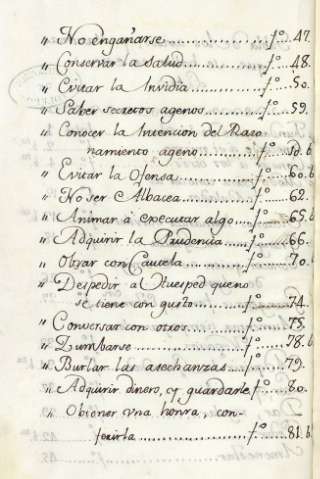 „ No engañarse................fº. 47.
„ Conservar la salud............fº. 48.
„ Evitar la Invidia..............fº. 50.
„ Saber secretos agenos.........fº. 59.
„ Conocer la Intencion del Razo
namiento ageno...........fº. 59. b.
„ Evitar la Ofensa..............fº. 60. b.
„ No ser Albacea................fº. 62.
„ Animar à executar algo.....fº. 65. b
„ Adquirir la Prudencia.....fº. 66.
„ Obrar con Cautela...........fº. 70. b
„ Despedir al Huesped que no
se tiene con gusto...........fº. 74.
„ Conversar con otros..........fº. 75.
„ Zumbarse.....................fº. 78. b
„ Burlar las asechanzas....fº. 79.
„ Adquirir dinero, y guardarle fº. 80.
„ Obtener una honra, con-
ferirla ....................fº. 81. b.